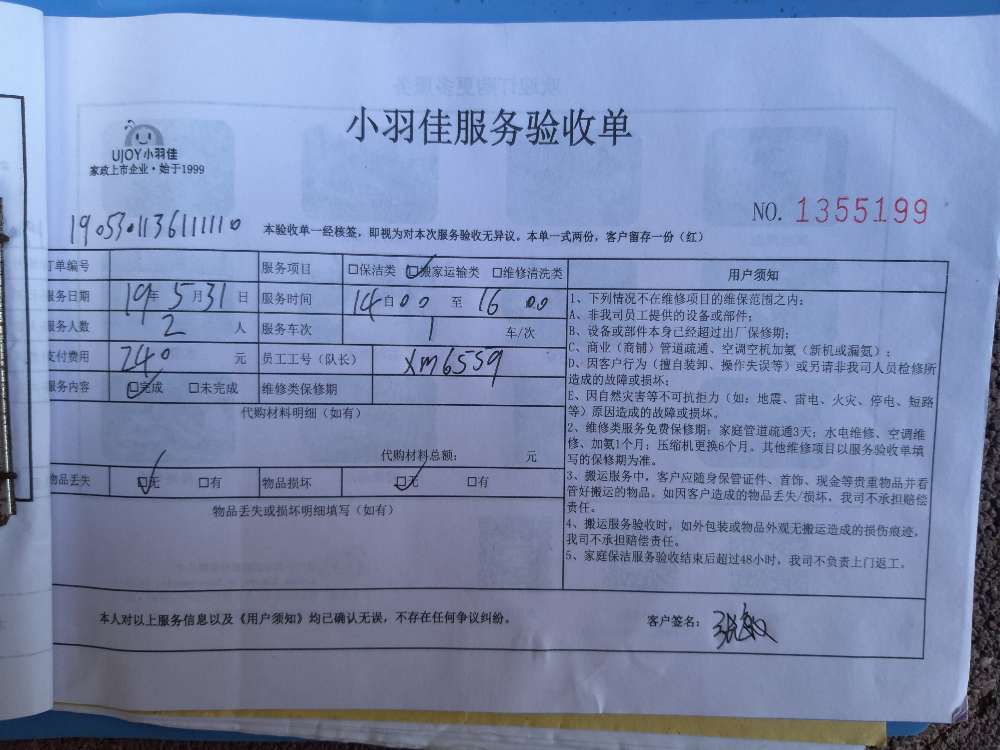 小羽佳服务验收单
UJOY小羽佳
家政上市企业·始于1999
NO. 1355199
190530113611110
本验收单一经核签，即视为对本次服务验收无异议。本单一式两份，客户留存一份（红）
订单编号 服务项目 □保洁类 ☑搬家运输类 □维修清洗类
服务日期 19年 5月31日 服务时间 14自00 至 16 00
服务人数 2 人 服务车次 1 车/次
支付费用 240 元 员工工号（队长） xm6559
服务内容 ☑完成 □未完成 维修类保修期
代购材料明细（如有）
代购材料总额： 元
物品丢失 ☑无 □有 物品损坏 ☑无 □有
物品丢失或损坏明细填写（如有）
用户须知
1、下列情况不在维修项目的维保范围之内：
A、非我司员工提供的设备或部件；
B、设备或部件本身已经超过出厂保修期；
C、商业（商铺）管道疏通、空调空机加氨（新机或漏氨）；
D、因客户行为（擅自装卸、操作失误等）或另请非我司人员检修所
造成的故障或损坏；
E、因自然灾害等不可抗拒力（如：地震、雷电、火灾、停电、短路
等）原因造成的故障或损坏。
2、维修类服务免费保修期：家庭管道疏通3天；水电维修、空调维
修、加氨1个月；压缩机更换6个月。其他维修项目以服务验收单填
写的保修期为准。
3、搬运服务中，客户应随身保管证件、首饰、现金等贵重物品并看
管好搬运的物品。如因客户造成的物品丢失/损坏，我司不承担赔偿
责任。
4、搬运服务验收时，如外包装或物品外观无搬运造成的损伤痕迹，
我司不承担赔偿责任。
5、家庭保洁服务验收结束后超过48小时，我司不负责上门返工。
本人对以上服务信息以及《用户须知》均已确认无误，不存在任何争议纠纷。
客户签名：